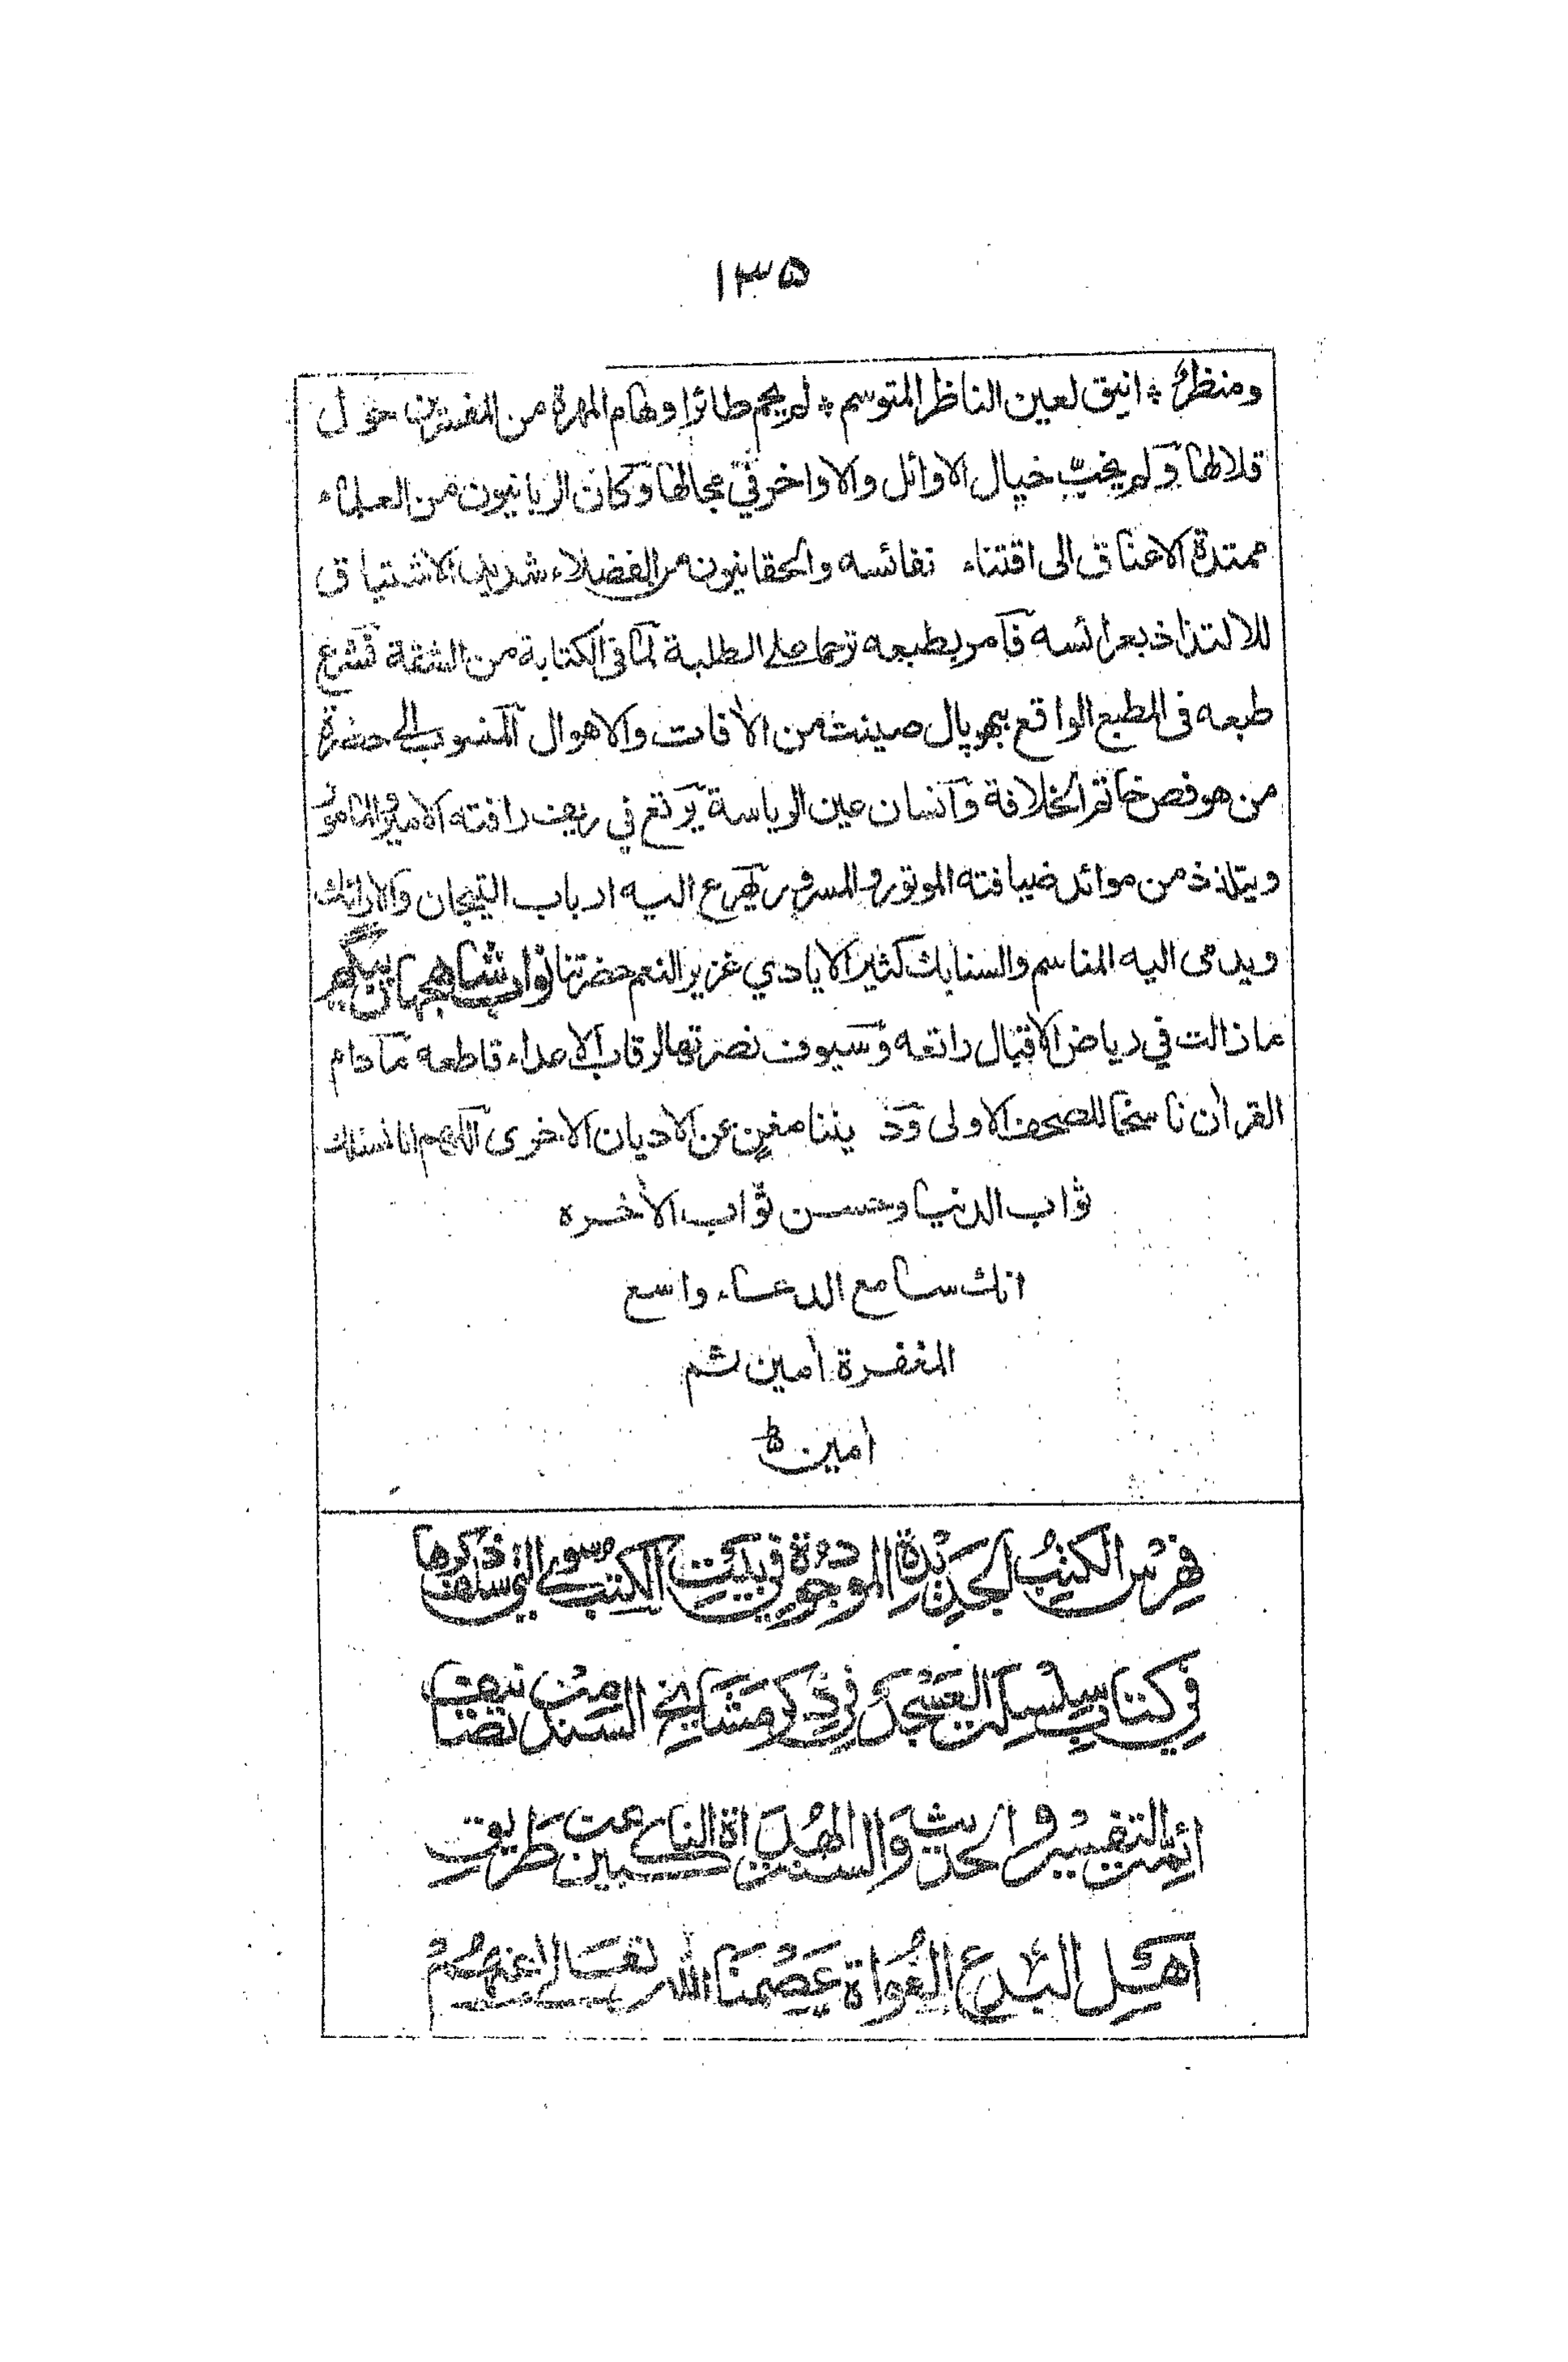 ۱۳۵
ومنظر * انيق لعين الناظر المتوسم * لم يحم طائر اوهام المهرة من المفسرين حول
قلالها ولم يخب خيال الاوائل والاواخر في مجالها وكان الربانيون من العلماء
ممتدة الاعناق الى اقتناء نفائسه والحقانيون من الفضلاء شديد الاشتياق
للالتذاذ بعرائسه فامر بطبعه ترحما على الطلبة لما في الكتابة من الشقة فشرع
طبعه فى المطبع الواقع ببهوپال صينت من الأفات والاهوال المنسوب الى حضرة
من هو فص خاتم الخلافة وانسان عين الرياسة يرتع في ريف رافته الامير والمامور
ويتلذذ من موائد ضيافته الموتور والمسرور يهرع اليه ارباب التيجان والارائك
ويدعى اليه المناسم والسنابك كثير الايادي غزير النعم حضرتنا نواب شاهجهان بيگم
ما زالت في رياض الاقبال راتعه وسيوف نصرتها لرقاب الاعداء قاطعه مادام
القرأن ناسخا للصحف الاولى ودينا مغن عن الاديان الاخرى اللهم انا نسئلك
ثواب الدنيا وحسن ثواب الأخره
انك سامع الدعاء واسع
المغفرة أمين ثم
أمين
فهرس الكتب الجديدة الموجودة في بيت الكتب سوى التي سلف ذكرها
في كتاب سلسلة العسجد في ذكر مشايخ السند من تصانيف
ائمة التفسير والحديث والسنة الهداة الناكبين عن طريقة
اهل البدع الغواة عصمنا الله تعالى عنهم